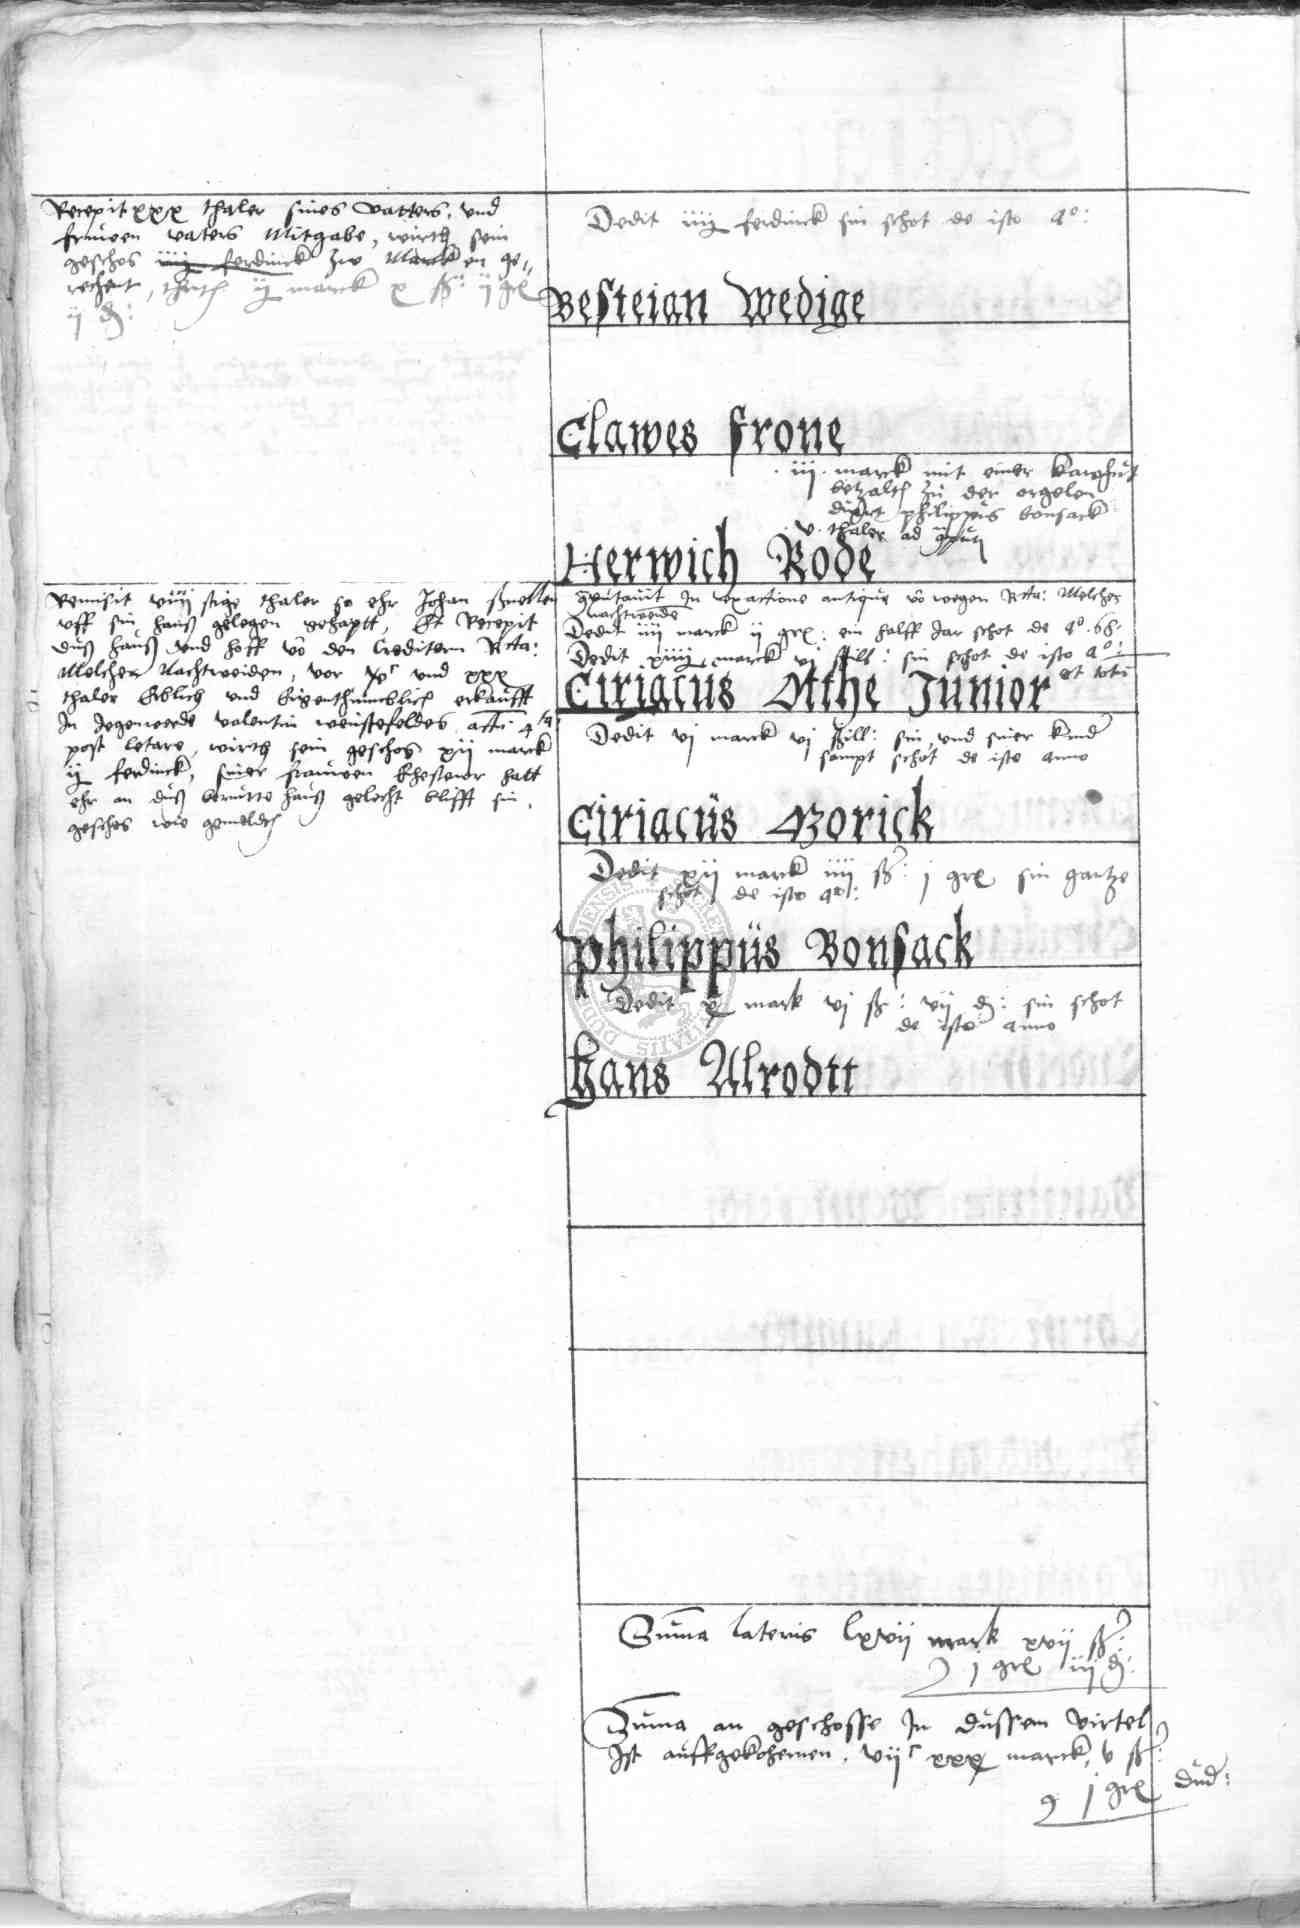 Recepit xxx thaler sines Vatters, und
frauwen vaters Mitgabe, wirth sein
geschos iiij ferdinck zw Marcken ge-
rechent, thutt ij marck x ß: ij grl
ij d:
Dedit iiij ferdinck sin schot de isto ao:
Besteian Wedige
Clawes Frone
iij marck mit einer
betzalt zu der orgelen
dixit philippus bonsack
v thaler ad
Herwich Rode
Remisit viij stige thaler so ehr Johan
uff sin hauß gelegen gehaptt, Et Recepit
duß hauß und hoff vo den Creditorn Rtta:
Melcher Nachtweiden, vor und xxx
thaler Erblich und Eigenthumblich erkaufft
In Jegenwerde Valentin actu: 4ta
post letare, wirth sein geschos xij marck
ij ferdinck, siner frauwen Ehestewr hatt
ehr an duß berurtte hauß gelecht blifft sin
geschos wie gemeldt
computavit In exactione antique vo wegen Rtta: Melcher
Nachtweide
Dedit iiij marck ij grl: ein halff Jar schot de ao. 68.
Dedit xiiij marck vj ßill: sin schot de isto ao:
Ciriacus Otthe Junior
Dedit vj marck vj ßill: sin und siner kinder
sampt schot de isto anno
Ciriacus Morick
Dedit xij marck iiij ß: j grl sin gantze
schot de isto ao:
Philippus Bonsack
Dedit x mark vj ß: vij d: sin schot
de isto anno
Hans Alrodtt
Suma lateris lxvij mark xvij ß:
j grl iij d:
Suma an geschosse In dussem virtel
Ist auffgekohemen. vijc xxx marck, v ß:
j grl dud: